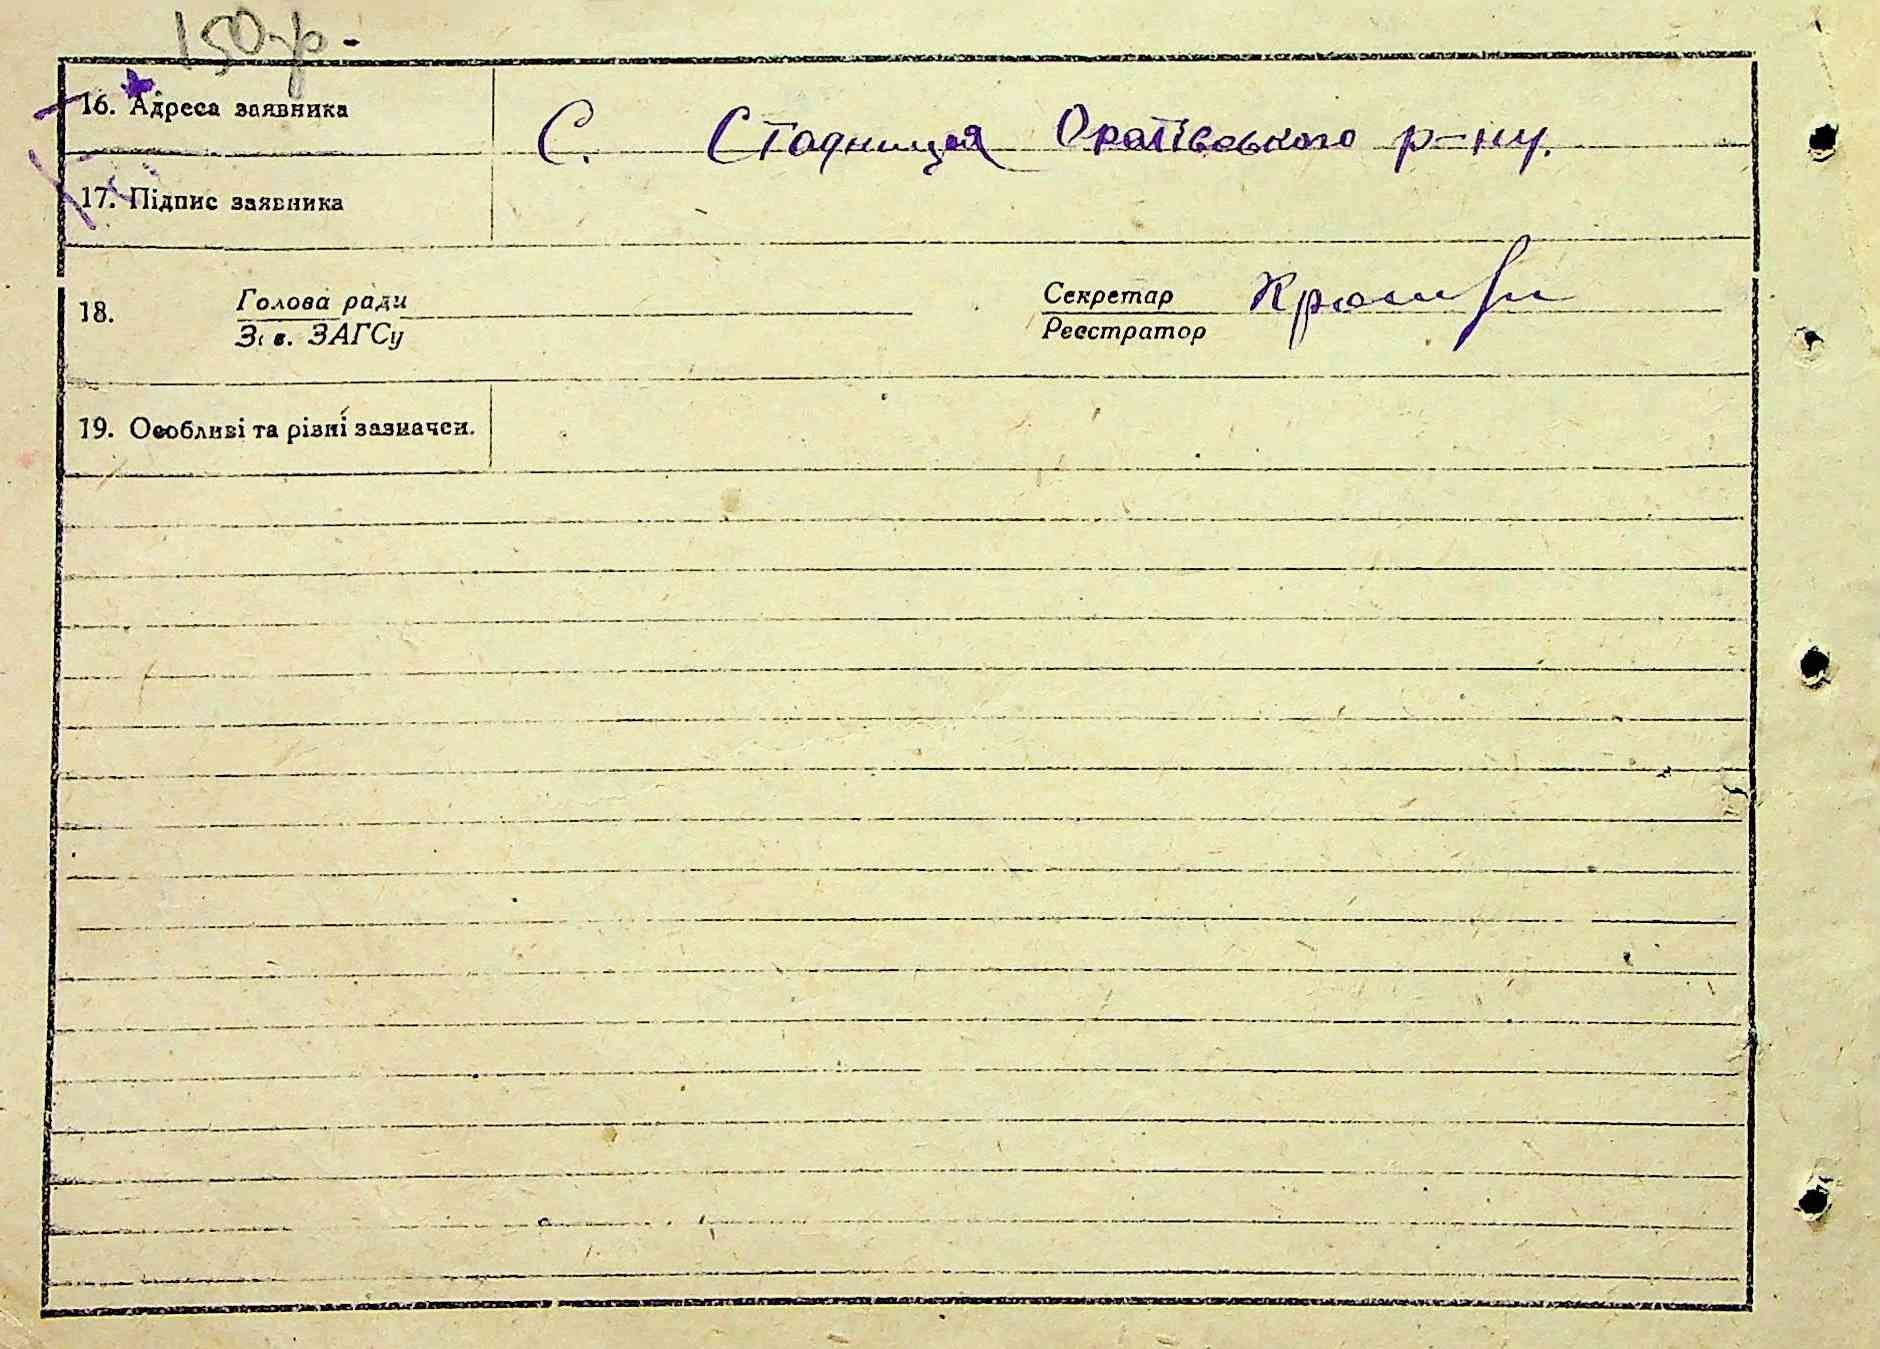 150 р-
16. Адреса заявника
С. Стадниця Оратівського р-ну.
17. Підпис заявника
18. Голова ради
Зав. ЗАГСу
Секретар
Реєстратор
19. Особливі та різні зазначен.